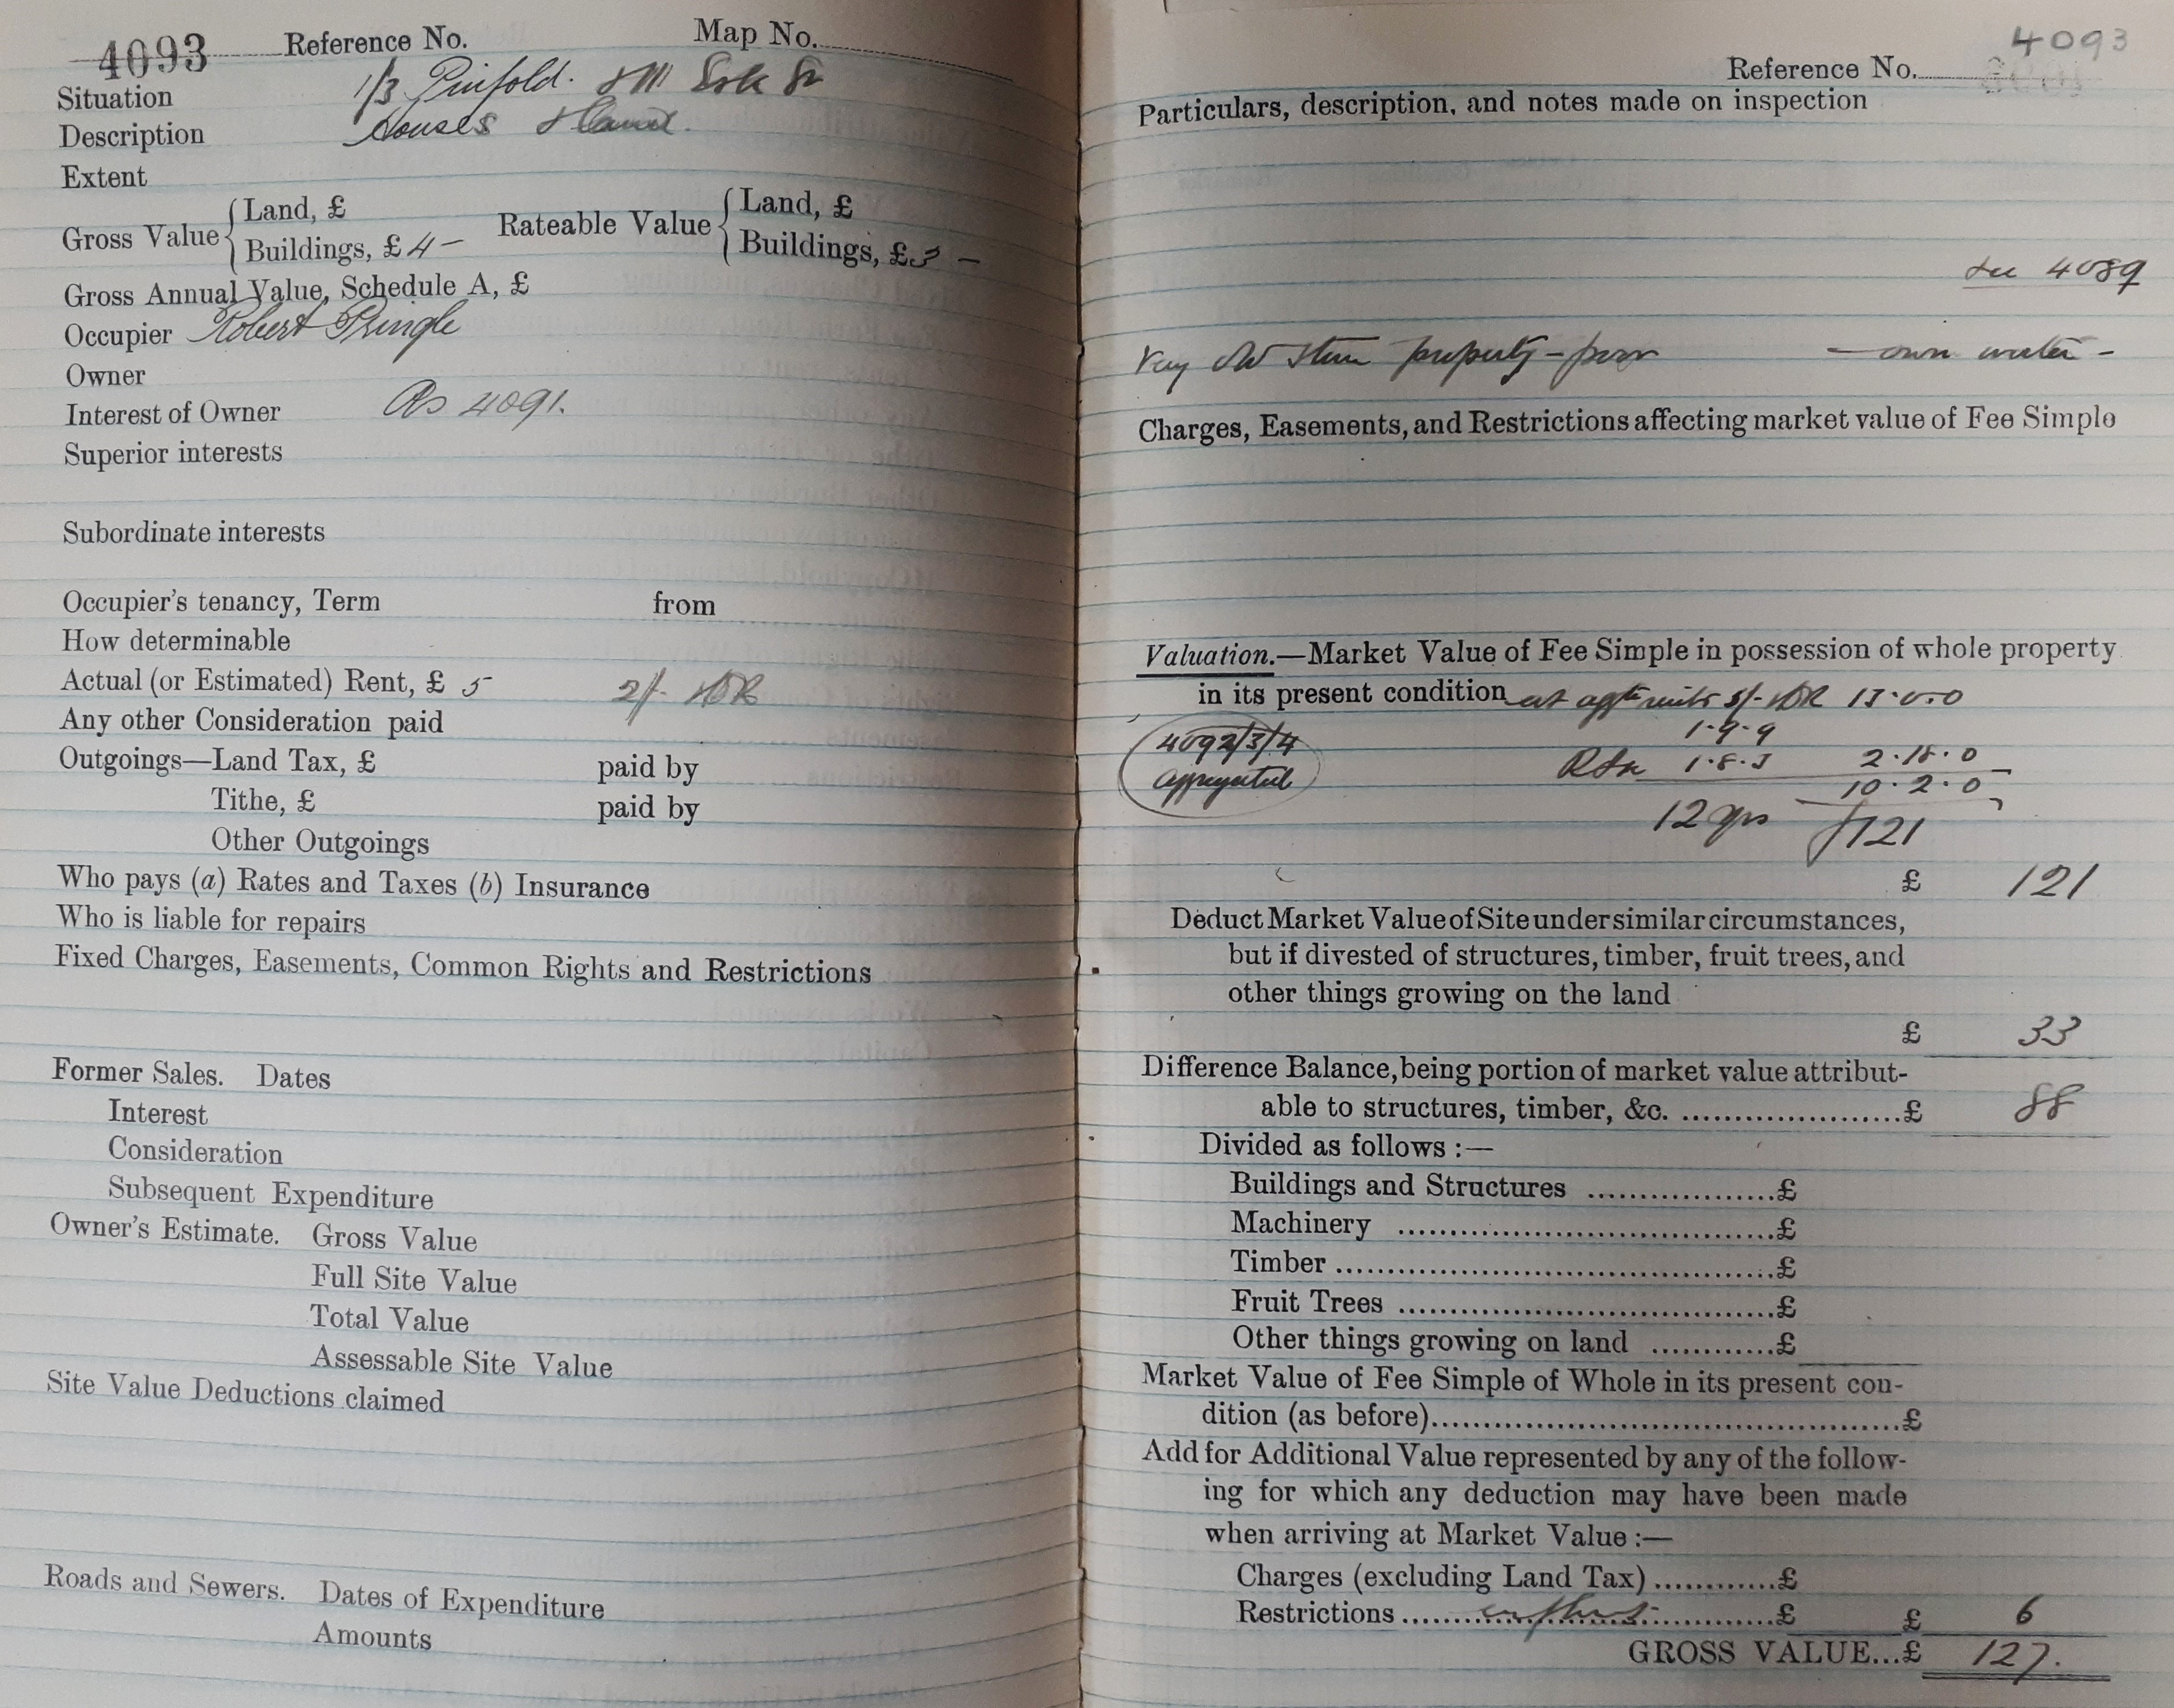 4093 Reference No. Map No.
Situation 1/3 Pinfold.
Description Houses & land.
Extent
Gross Value { Land, £
Buildings, £ 4 – Rateable Value { Land, £
Buildings, £ 3 –
Gross Annual Value, Schedule A, £
Occupier Robert Pringle
Owner
Interest of Owner As 4091.
Superior interests
Subordinate interests
Occupier's tenancy, Term from
How determinable
Actual (or Estimated) Rent, £ 5 2/-
Any other Consideration paid
Outgoings—Land Tax, £ paid by
Tithe, £ paid by
Other Outgoings
Who pays (a) Rates and Taxes (b) Insurance
Who is liable for repairs
Fixed Charges, Easements, Common Rights and Restrictions
Former Sales. Dates
Interest
Consideration
Subsequent Expenditure
Owner's Estimate. Gross Value
Full Site Value
Total Value
Assessable Site Value
Site Value Deductions claimed
Roads and Sewers. Dates of Expenditure
Amounts
4093
Reference No.
Particulars, description, and notes made on inspection
see 4089
Very old stone property – poor – own water –
Charges, Easements, and Restrictions affecting market value of Fee Simple
Valuation.—Market Value of Fee Simple in possession of whole property
in its present condition at rents 5/- 13.0.0
1.9.9
4092/3/4
aggregated
1.8.3 2.18.0
10.2.0
12 yrs £121
£ 121
Deduct Market Value of Site under similar circumstances,
but if divested of structures, timber, fruit trees, and
other things growing on the land
£ 33
Difference Balance, being portion of market value attribut-
able to structures, timber, &c. ....................£ 88
Divided as follows :—
Buildings and Structures ..................£
Machinery ....................................£
Timber ..........................................£
Fruit Trees ....................................£
Other things growing on land ............£
Market Value of Fee Simple of Whole in its present con-
dition (as before)..............................................£
Add for Additional Value represented by any of the follow-
ing for which any deduction may have been made
when arriving at Market Value :—
Charges (excluding Land Tax) ............£
Restrictions ....................................£ £ 6
GROSS VALUE...£ 127.